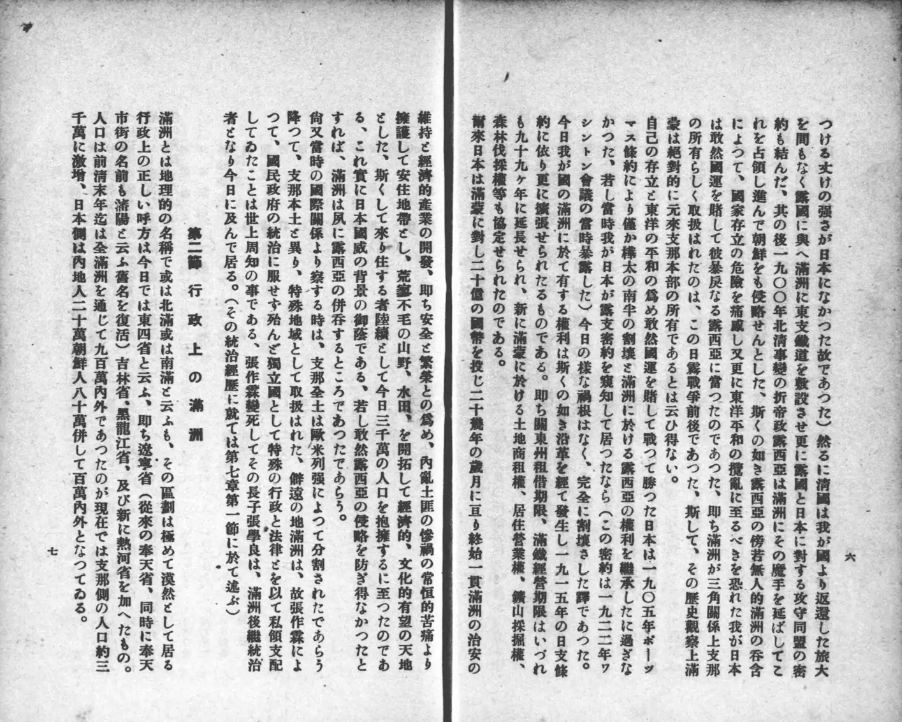 つける丈けの强さが日本になかつた故であつた）然るに淸國は我が國より返還した旅大
を間もなく露國に與へ滿洲に東支鐵道を敷設させ更に露國と日本に對する攻守同盟の密
約も結んだ、其の後一九〇〇年北淸事變の折帝政露西亞は滿洲にその魔手を延ばしてこ
れを占領し進んで朝鮮をも侵略せんとした、斯くの如き露西亞の傍若無人的滿洲の呑含
によつて、國家存立の危險を痛感し又更に東洋平和の攪亂に至るべきを恐れた我が日本
は敢然國運を賭して彼暴戾なる露西亞に當つたのであつた、卽ち滿洲が三角關係上支那
の所有らしく取扱はれたのは、この日露戰爭前後であつた、斯して、その歷史觀察上滿
蒙は絕對的に元來支那本部の所有であるとは云ひ得ない。
自己の存立と東洋の平和の爲め敢然國運を賭して戰つて勝つた日本は一九〇五年ポーツ
マス條約により僅か樺太の南半の割壤と滿洲に於ける露西亞の權利を繼承したに過ぎな
かつた、若し當時我が日本が露支密約を窺知して居つたなら（この密約は一九二二年ワ
シントン會議の當時暴露した）今日の樣な禍根はなく、完全に割壤さした譯であつた。
今日我が國の滿洲に於て有する權利は斯くの如き沿革を經て發生し一九一五年の日支條
約に依り更に擴張せられたるものである。卽ち關東州租借期限、滿鐵經營期限はいづれ
も九十九ヶ年に延長せられ、新に滿蒙に於ける土地商租權、居住營業權、鑛山採掘權、
森林伐採權等も協定せられたのである。
爾來日本は滿蒙に對し二十億の國幣を投じ二十幾年の歲月に亘り終始一貫滿洲の治安の
六
維持と經濟的產業の開發、卽ち安全と繁榮との爲め、內亂土匪の慘禍の常恒的苦痛より
擁護して安住地帶とし、荒蓙不毛の山野、水田、を開拓して經濟的、文化的有望の天地
とした、斯くして來り住する者陸續として今日三千萬の人口を抱擁するに至つたのであ
る、これ實に日本國威の背景の御蔭である、若し敢然露西亞の侵略を防ぎ得なかつたと
すれば、滿洲は夙に露西亞の併呑するところであつたであらう。
尙又當時の國際關係より察する時は、支那全土は歐米列强によつて分割されたであらう
降つて、支那本土と異り、特殊地域として取扱はれた、僻遠の地滿洲は、故張作霖によ
つて、國民政府の統治に服せず殆んど獨立國として特殊の行政と法律とを以て私領支配
してゐたことは世上周知の事である、張作霖變死してその長子張學良は、滿洲後繼統治
者となり今日に及んで居る。（その統治經歷に就ては第七章第一節に於て述ぶ）
第二節 行政上の滿洲
滿洲とは地理的の名稱で或は北滿或は南滿と云ふも、その區劃は極めて漠然として居る
行政上の正しい呼方は今日では東四省と云ふ、卽ち遼寧省（從來の奉天省、同時に奉天
市街の名前も瀋陽と云ふ舊名を復活）吉林省、黑龍江省、及び新に熱河省を加へたもの。
人口は前淸末年迄は全滿洲を通じて九百萬內外であつたのが現在では支那側の人口約三
千萬に激增、日本側は內地人二十萬朝鮮人八十萬併して百萬內外となつてゐる。
七